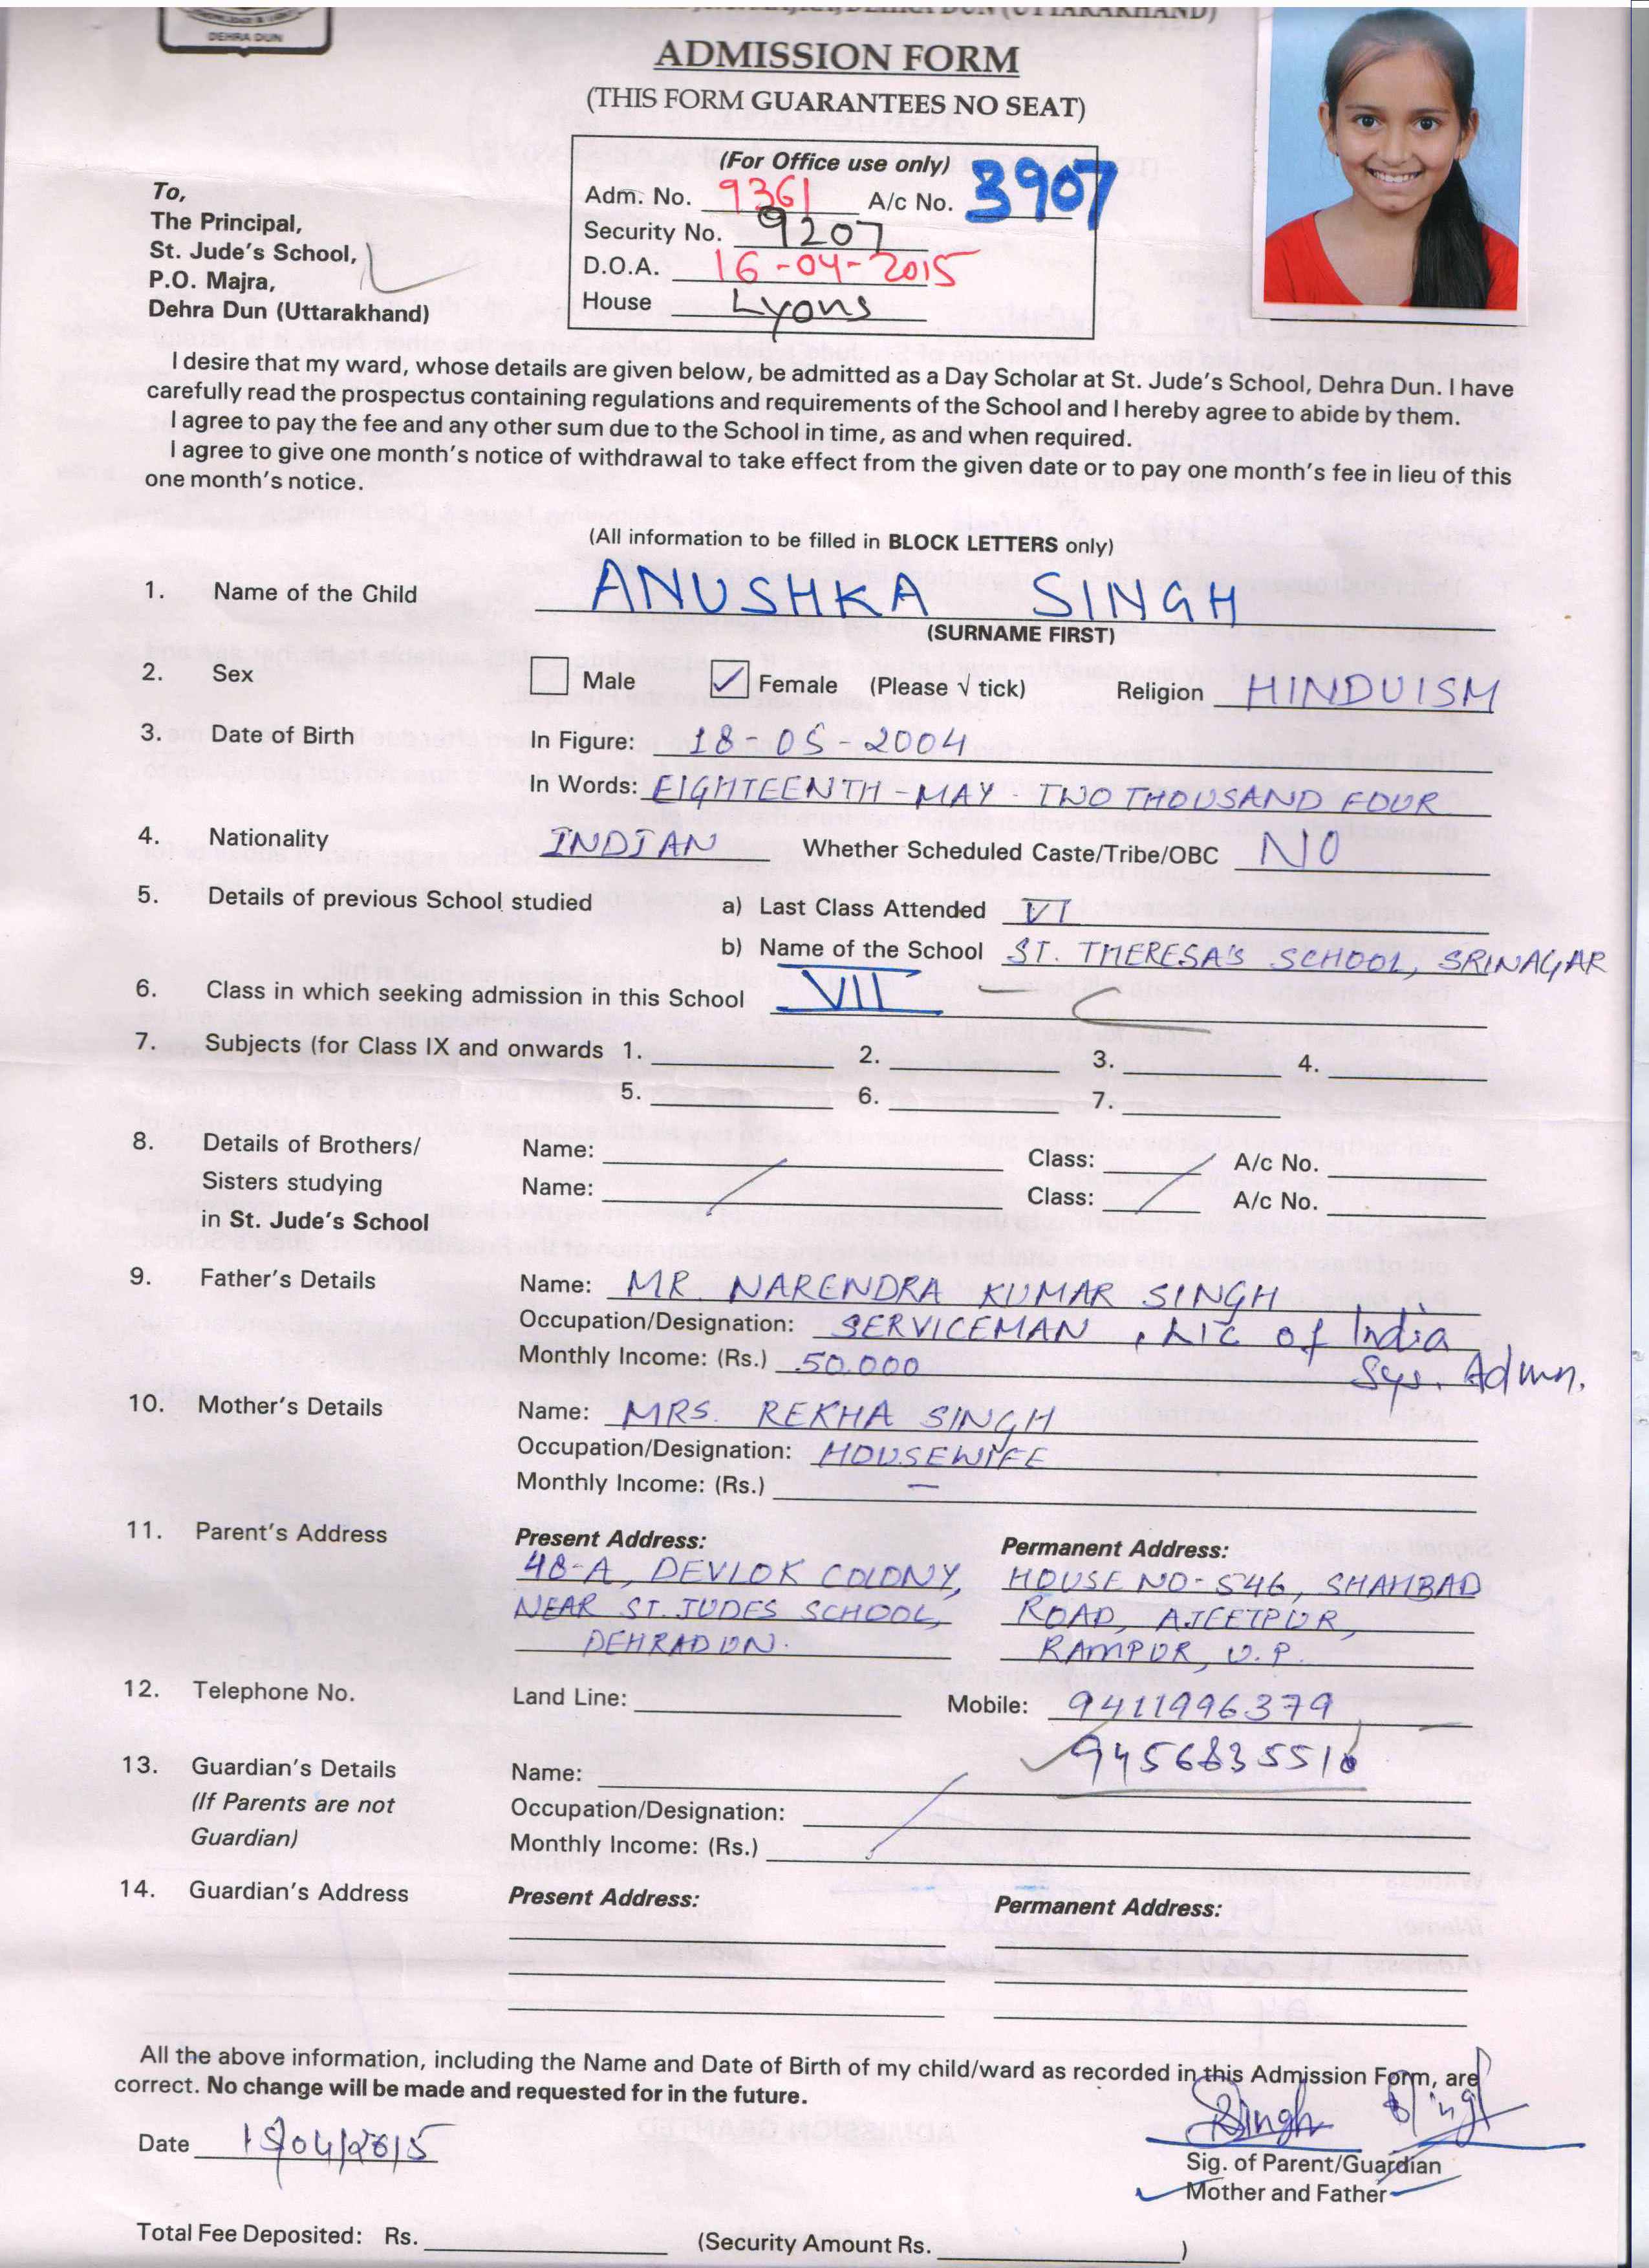 DEHRA DUN
DEHRA DUN (UTTARAKHAND)
ADMISSION FORM
(THIS FORM GUARANTEES NO SEAT)
(For Office use only)
Adm. No. 9361 A/c No. 3907
Security No. 9207
D.O.A. 16-04-2015
House Lyons
To,
The Principal,
St. Jude's School,
P.O. Majra,
Dehra Dun (Uttarakhand)
I desire that my ward, whose details are given below, be admitted as a Day Scholar at St. Jude's School, Dehra Dun. I have
carefully read the prospectus containing regulations and requirements of the School and I hereby agree to abide by them.
I agree to pay the fee and any other sum due to the School in time, as and when required.
I agree to give one month's notice of withdrawal to take effect from the given date or to pay one month's fee in lieu of this
one month's notice.
(All information to be filled in BLOCK LETTERS only)
1. Name of the Child ANUSHKA SINGH
(SURNAME FIRST)
2. Sex Male ✓ Female (Please √ tick) Religion HINDUISM
3. Date of Birth In Figure: 18-05-2004
In Words: EIGHTEENTH - MAY - TWO THOUSAND FOUR
4. Nationality INDIAN Whether Scheduled Caste/Tribe/OBC NO
5. Details of previous School studied a) Last Class Attended VI
b) Name of the School ST. THERESA'S SCHOOL, SRINAGAR
6. Class in which seeking admission in this School VII - C
7. Subjects (for Class IX and onwards 1. 2. 3. 4.
5. 6. 7.
8. Details of Brothers/ Name: Class: A/c No.
Sisters studying Name: Class: A/c No.
in St. Jude's School
9. Father's Details Name: MR. NARENDRA KUMAR SINGH
Occupation/Designation: SERVICEMAN, LIC of India
Monthly Income: (Rs.) 50.000 Sys. Admn.
10. Mother's Details Name: MRS. REKHA SINGH
Occupation/Designation: HOUSEWIFE
Monthly Income: (Rs.) -
11. Parent's Address Present Address: Permanent Address:
48-A, DEVLOK COLONY, HOUSE NO-546, SHAHBAD
NEAR ST. JUDES SCHOOL, ROAD, AJEETPUR,
DEHRADUN. RAMPUR, U.P.
12. Telephone No. Land Line: Mobile: 9411996379
13. Guardian's Details Name:
(If Parents are not Occupation/Designation:
Guardian) Monthly Income: (Rs.)
14. Guardian's Address Present Address: Permanent Address:
All the above information, including the Name and Date of Birth of my child/ward as recorded in this Admission Form, are
correct. No change will be made and requested for in the future.
Date 15/04/2015 Singh Singh
Sig. of Parent/Guardian
Mother and Father
Total Fee Deposited: Rs. (Security Amount Rs. )